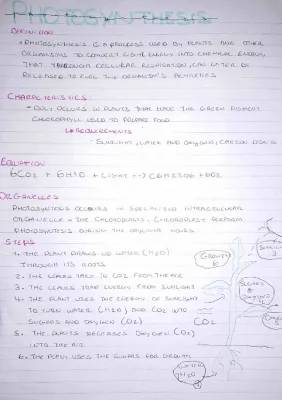 PHOTOSYNTHESIS
DEFINITION
• PHOTOSYNTHESIS IS A PROCESS USED BY PLANTS AND OTHER
ORGANISMS TO CONVERT LIGHT ENERGY INTO CHEMICAL ENERGY
THAT THROUGH CELLULAR RESPIRATION, CAN LATER BE
RELEASED TO FUEL THE ORGANISM'S ACTIVITIES
CHARACTERISTICS:
• ONLY OCCURS IN PLANTS THAT HAVE THE GREEN PIGMENT
CHLOROPHYLL USED TO PREPARE FOOD
REQUIREMENTS
SUNLIGHT, WATER AND OXYGEN, CARBON
EQUATION
6CO2 + 6H2O + LIGHT → + 6O2
ORGANELLES
PHOTOSYNTHESIS OCCURS IN SPECIALIZED INTRACELLULAR
ORGANELLE - THE CHLOROPLASTS. CHLOROPLAST PERFORM
PHOTOSYNTHESIS DURING THE DAYLIGHT HOURS
STEPS
1. THE PLANT DRAWS UP WATER (H2O)
THROUGH ITS ROOTS
2. THE LEAVES TAKE IN CO2 FROM THE AIR
3. THE LEAVES TRAP ENERGY FROM SUNLIGHT
4. THE PLANT USES THE ENERGY OF SUNLIGHT
TO TURN WATER (H2O) AND CO2 INTO
SUGARS AND OXYGEN (O2)
5. THE PLANTS RELEASES OXYGEN (O2)
INTO THE AIR
6. THE PLANT USES THE SUGARS FOR GROWTH
GROWTH
6
SUGARS
&
OXYGEN
CO2
WATER
H2O